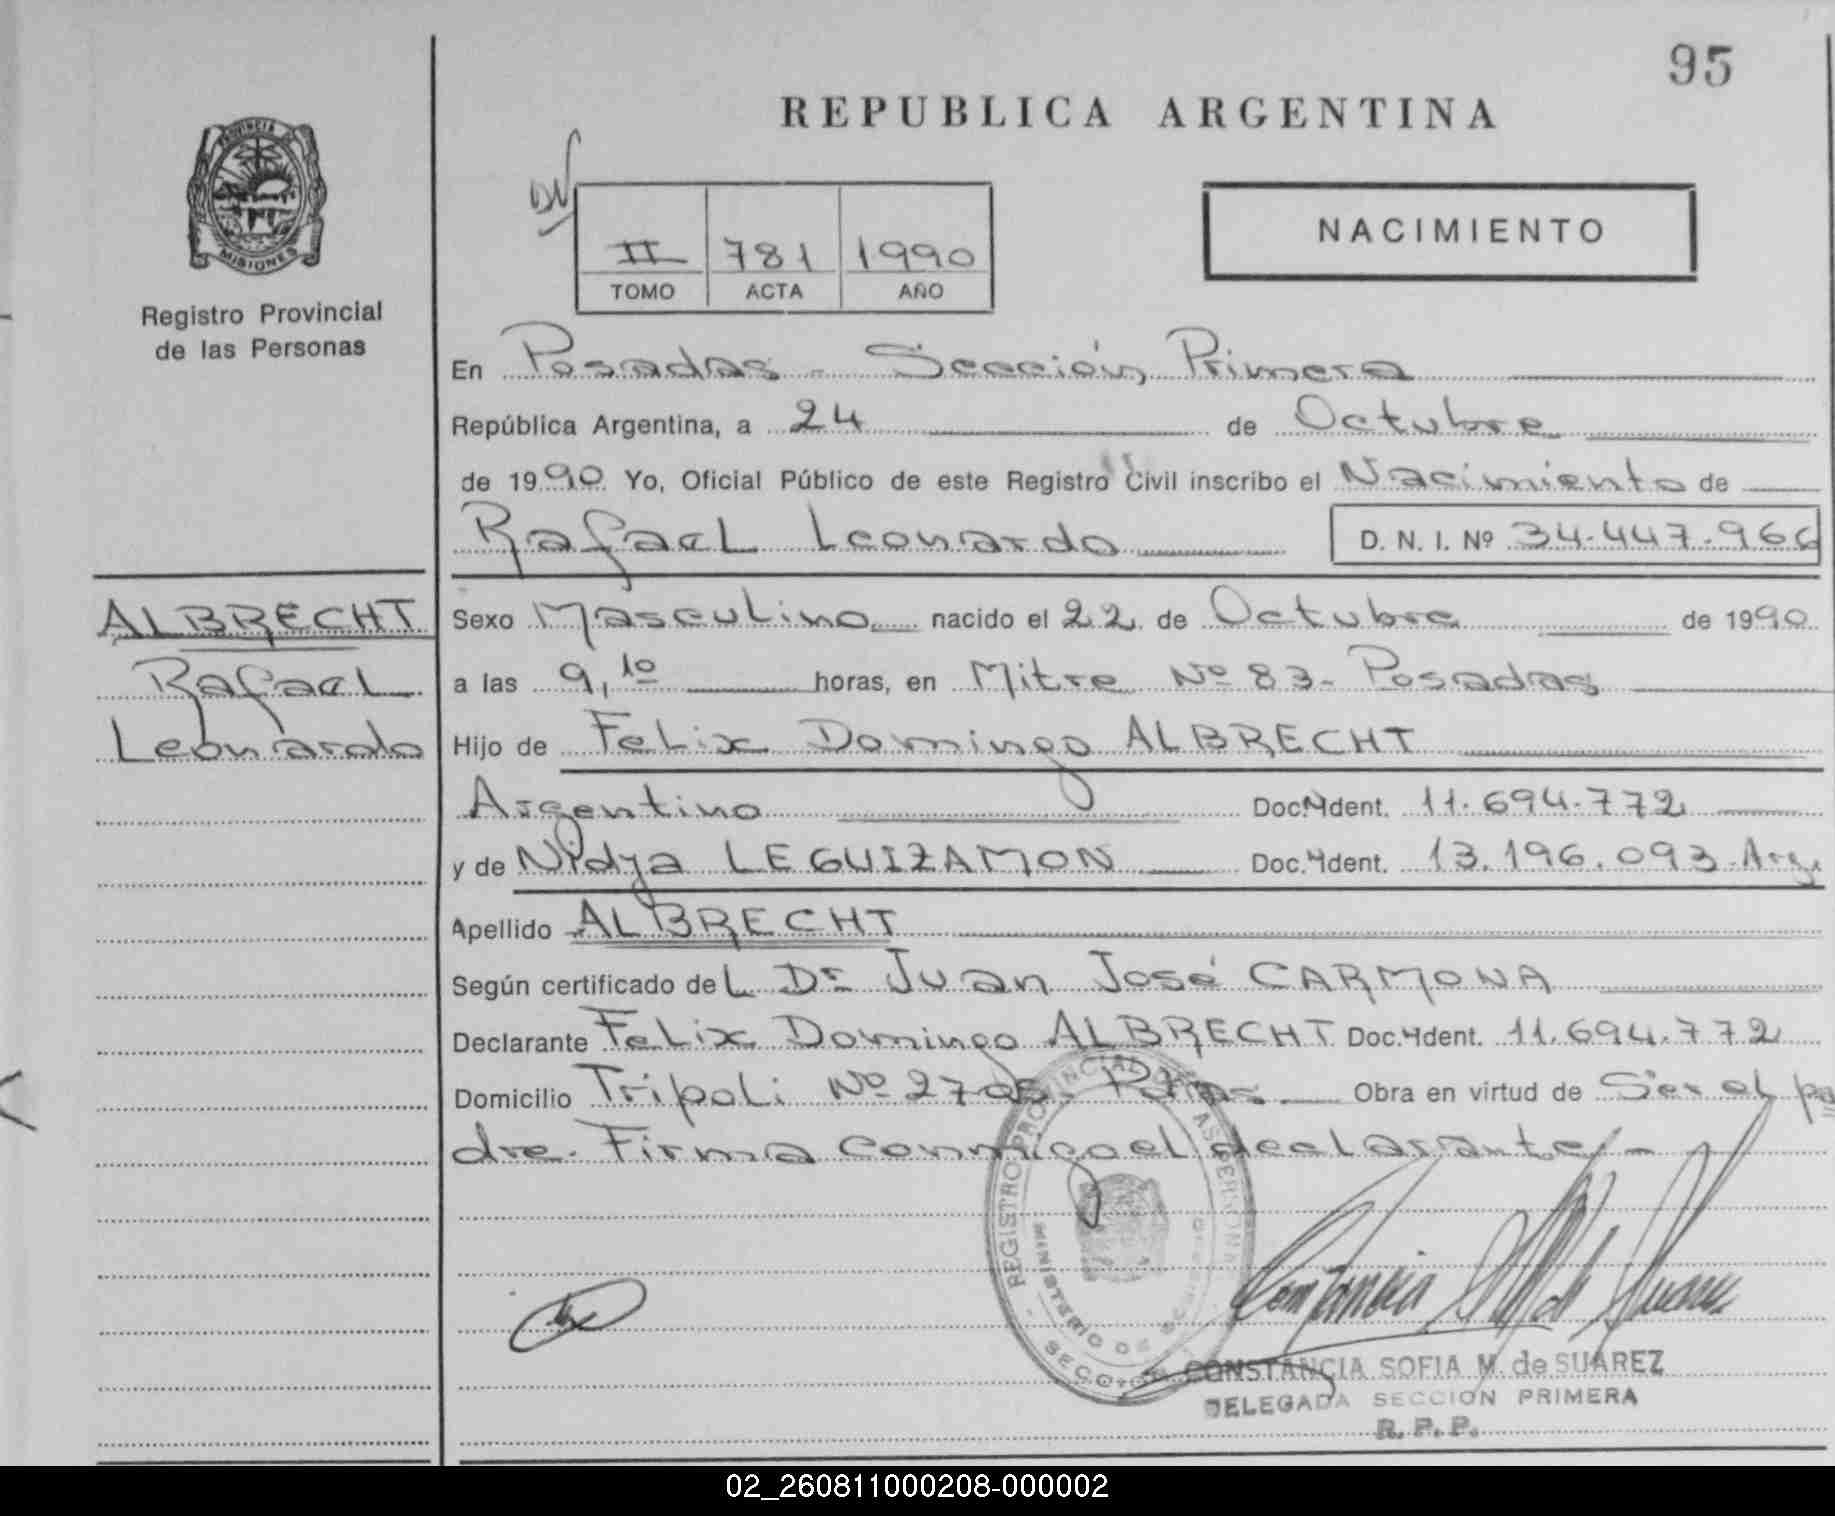 95
REPUBLICA ARGENTINA
PROVINCIA
MISIONES
Registro Provincial
de las Personas
II 781 1990
TOMO ACTA AÑO
NACIMIENTO
En Posadas - Sección Primera
República Argentina, a 24 de Octubre
de 1990 Yo, Oficial Público de este Registro Civil inscribo el Nacimiento de
Rafael Leonardo D. N. I. Nº 34.447.966
ALBRECHT
Rafael
Leonardo
Sexo Masculino nacido el 22 de Octubre de 1990
a las 9,10 horas, en Mitre Nº 83- Posadas
Hijo de Felix Domingo ALBRECHT
Argentino Doc. Ident. 11.694.772
y de Nidya LEGUIZAMON Doc. Ident. 13.196.093.Arg.
Apellido ALBRECHT
Según certificado del Dr Juan José CARMONA
Declarante Felix Domingo ALBRECHT Doc. Ident. 11.694.772
Domicilio Tripoli Nº Obra en virtud de Ser el pa
dre. Firma conmigo el declarante. -
REGISTRO PROVINCIAL DE LAS PERSONAS
MINISTERIO DE
SECCION
CONSTANCIA SOFIA M. de SUAREZ
DELEGADA SECCION PRIMERA
R. P. P.
02_260811000208-000002